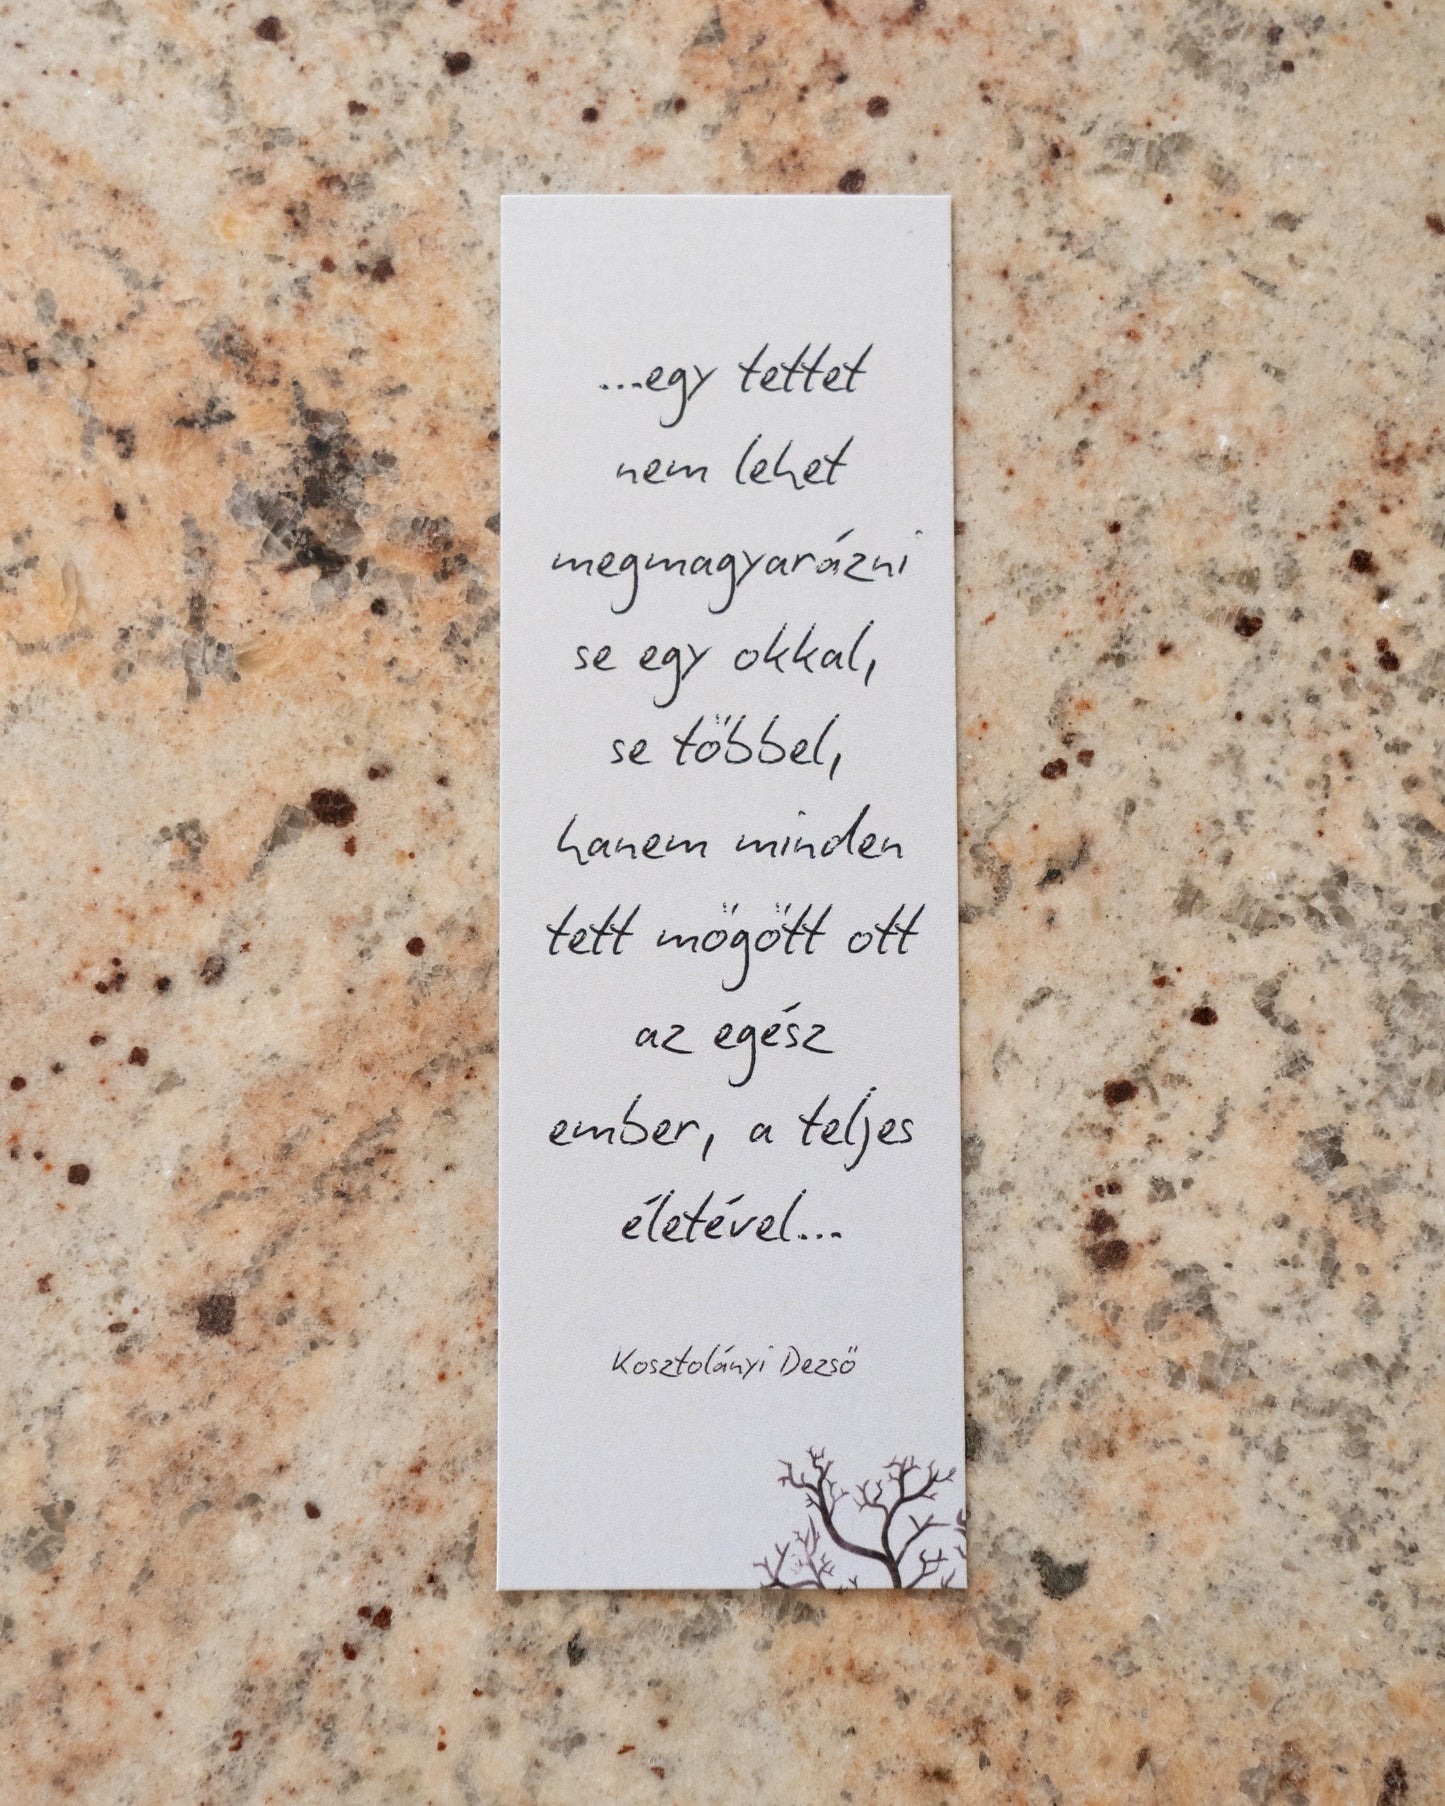 ...egy tettet
nem lehet
megmagyarázni
se egy okkal,
se többel,
hanem minden
tett mögött ott
az egész
ember, a teljes
életével...
Kosztolányi Dezső